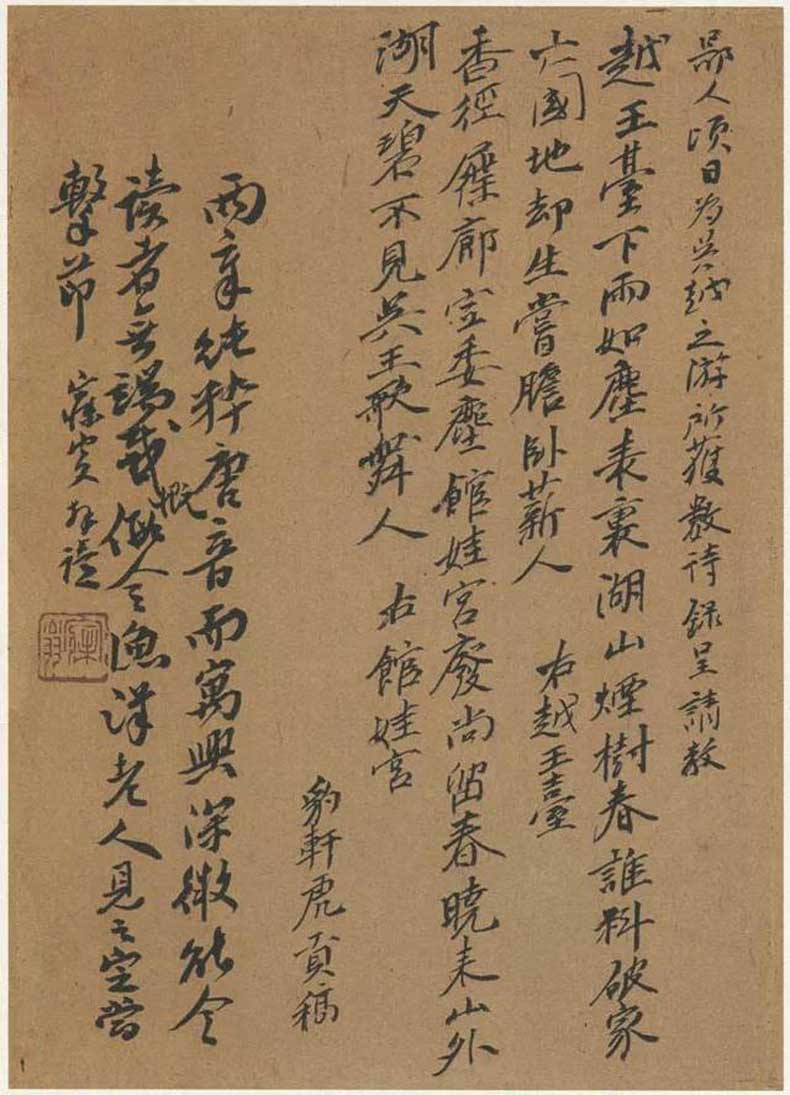 鄙人頃日為吳越之游所獲數詩録呈請教
越王臺下雨如塵表裏湖山煙樹春誰料破家
亡國地却生嘗膽卧薪人 右越王臺
香徑屧廊空委塵館娃宮廢尚留春曉来山外
湖天碧不見吳王歌舞人 右館娃宮
豹軒虎稿
兩章純粹唐音而寓興深微能令
讀者無端感慨假令漁洋老人見之定當
擊節 拜讀